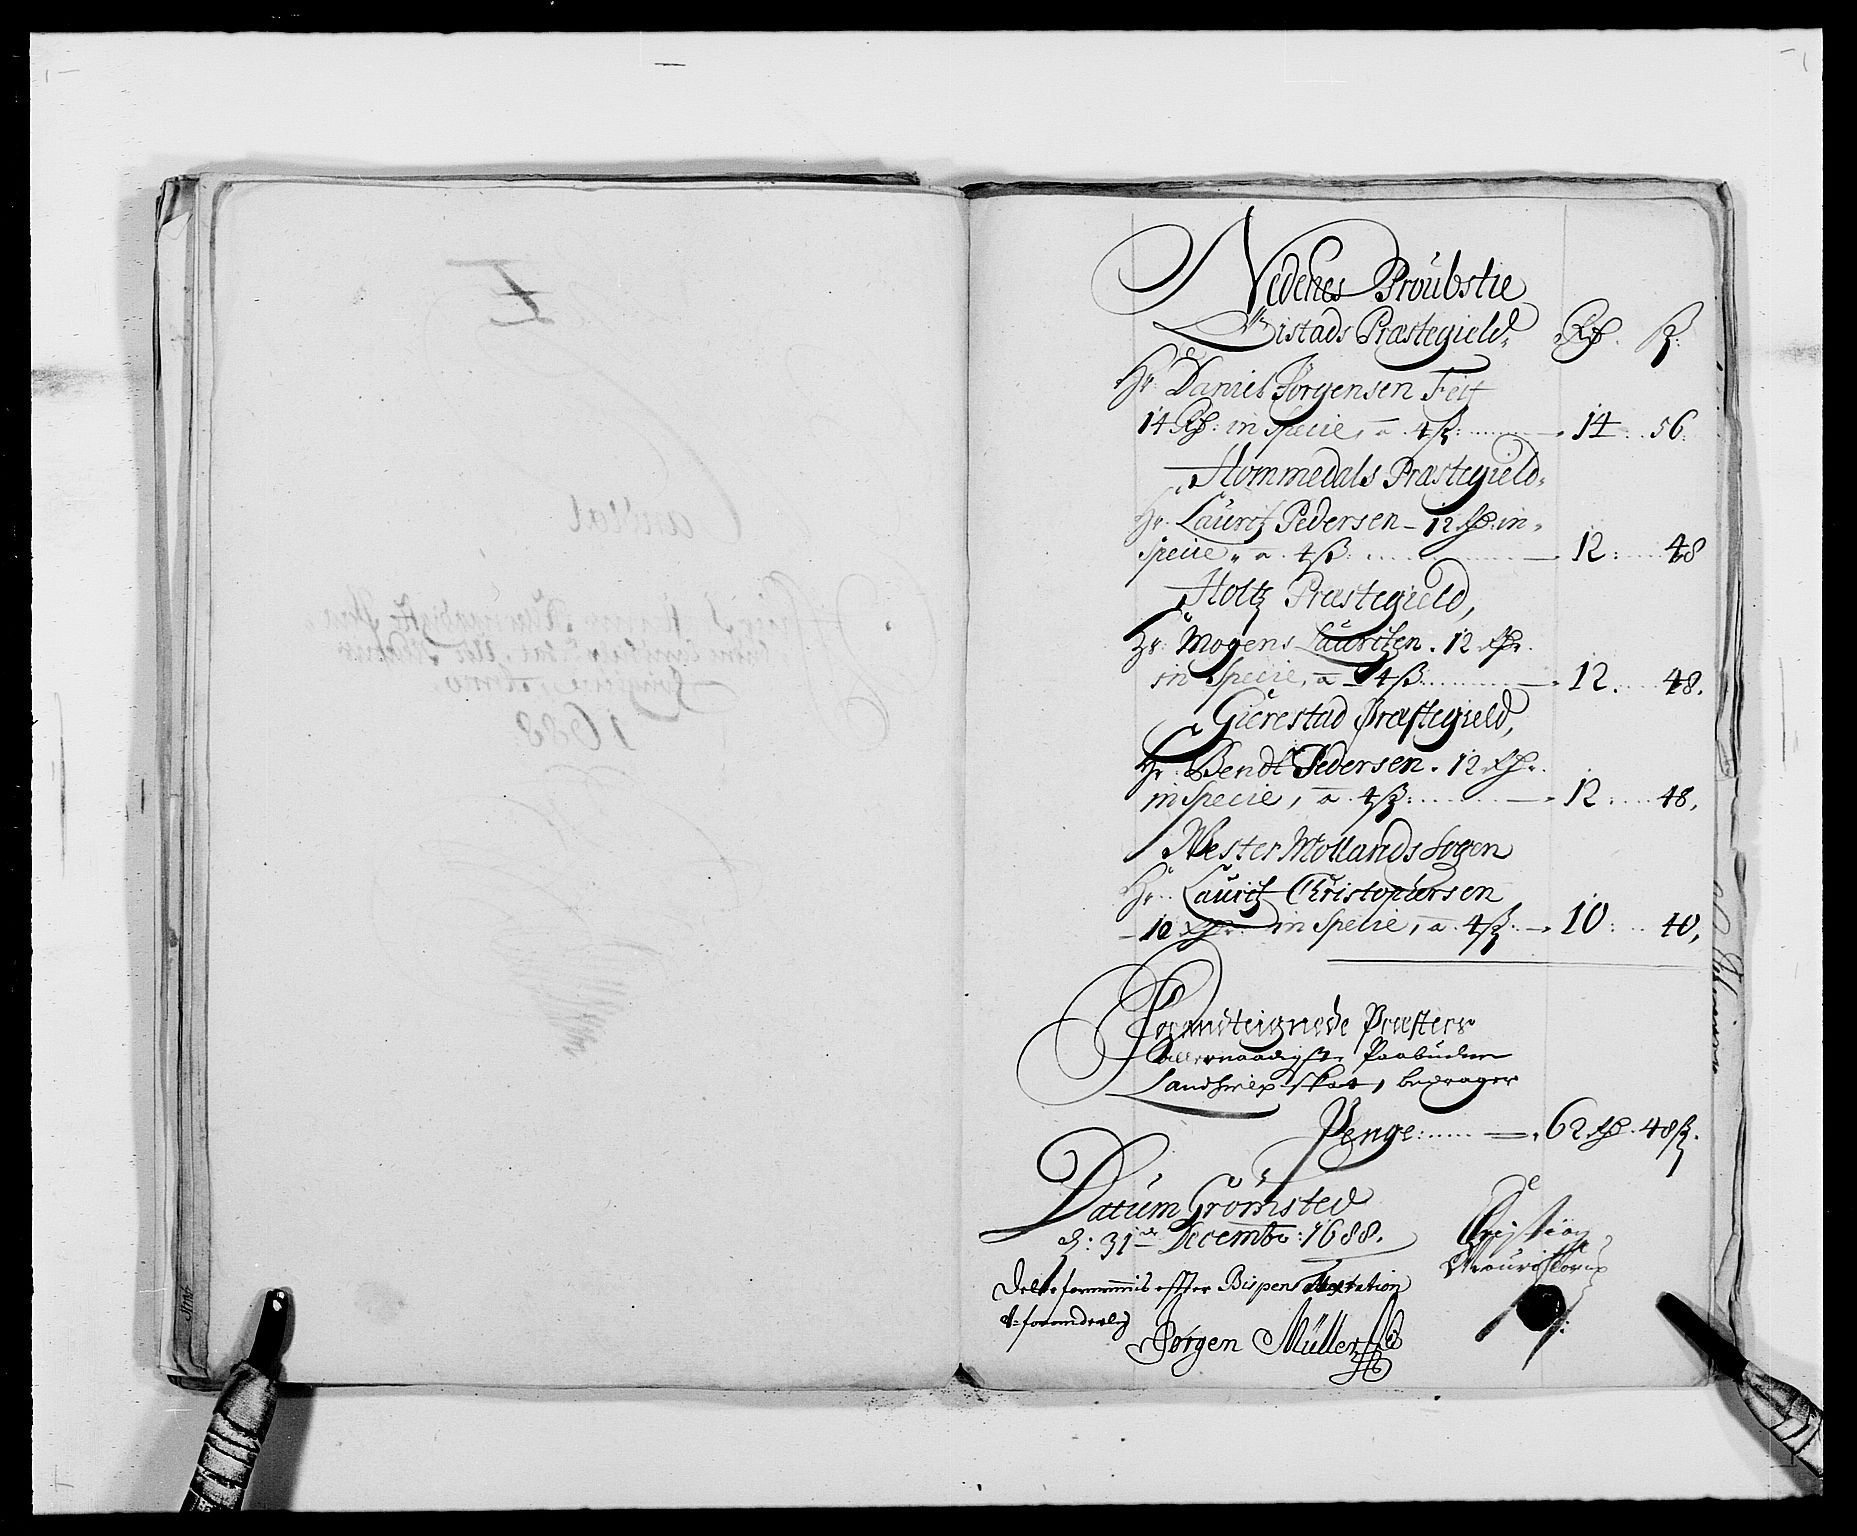 Nedenes Proubstie
Gistads Præstegield. Rd. ß:
Hr: Daniel Jørgensen Feif
14 Rd: in Specie, a 4 ß: 14 56
Hommedals Præstegield
Hr. Lauritz Pedersen 12 Rd: in
Specie, a 4 ß: 12: 48
Holtz Præstegield,
Hr: Mogens Lauritzen. 12 Rdr.
in Specie, a 4 ß 12. 48.
Gierestad Præstegield,
Hr: Bendt Pedersen. 12 Rdr.
in Specie, a 4 ß: 12: 48,
Wester Mollands Sogen
Hr. Lauritz Christophersen
10 Rdr: in Specie, a 4 ß: 10: 40,
Præsters
allernaadigste Paabudne
Landhielp skat, bedrager
Penge: 62 Rd. 48 ß.
Datum Grømsted
d: 31de Decemb: 1688.
Christian
effter Bispens Attestation
Jørgen Müller
E
1688